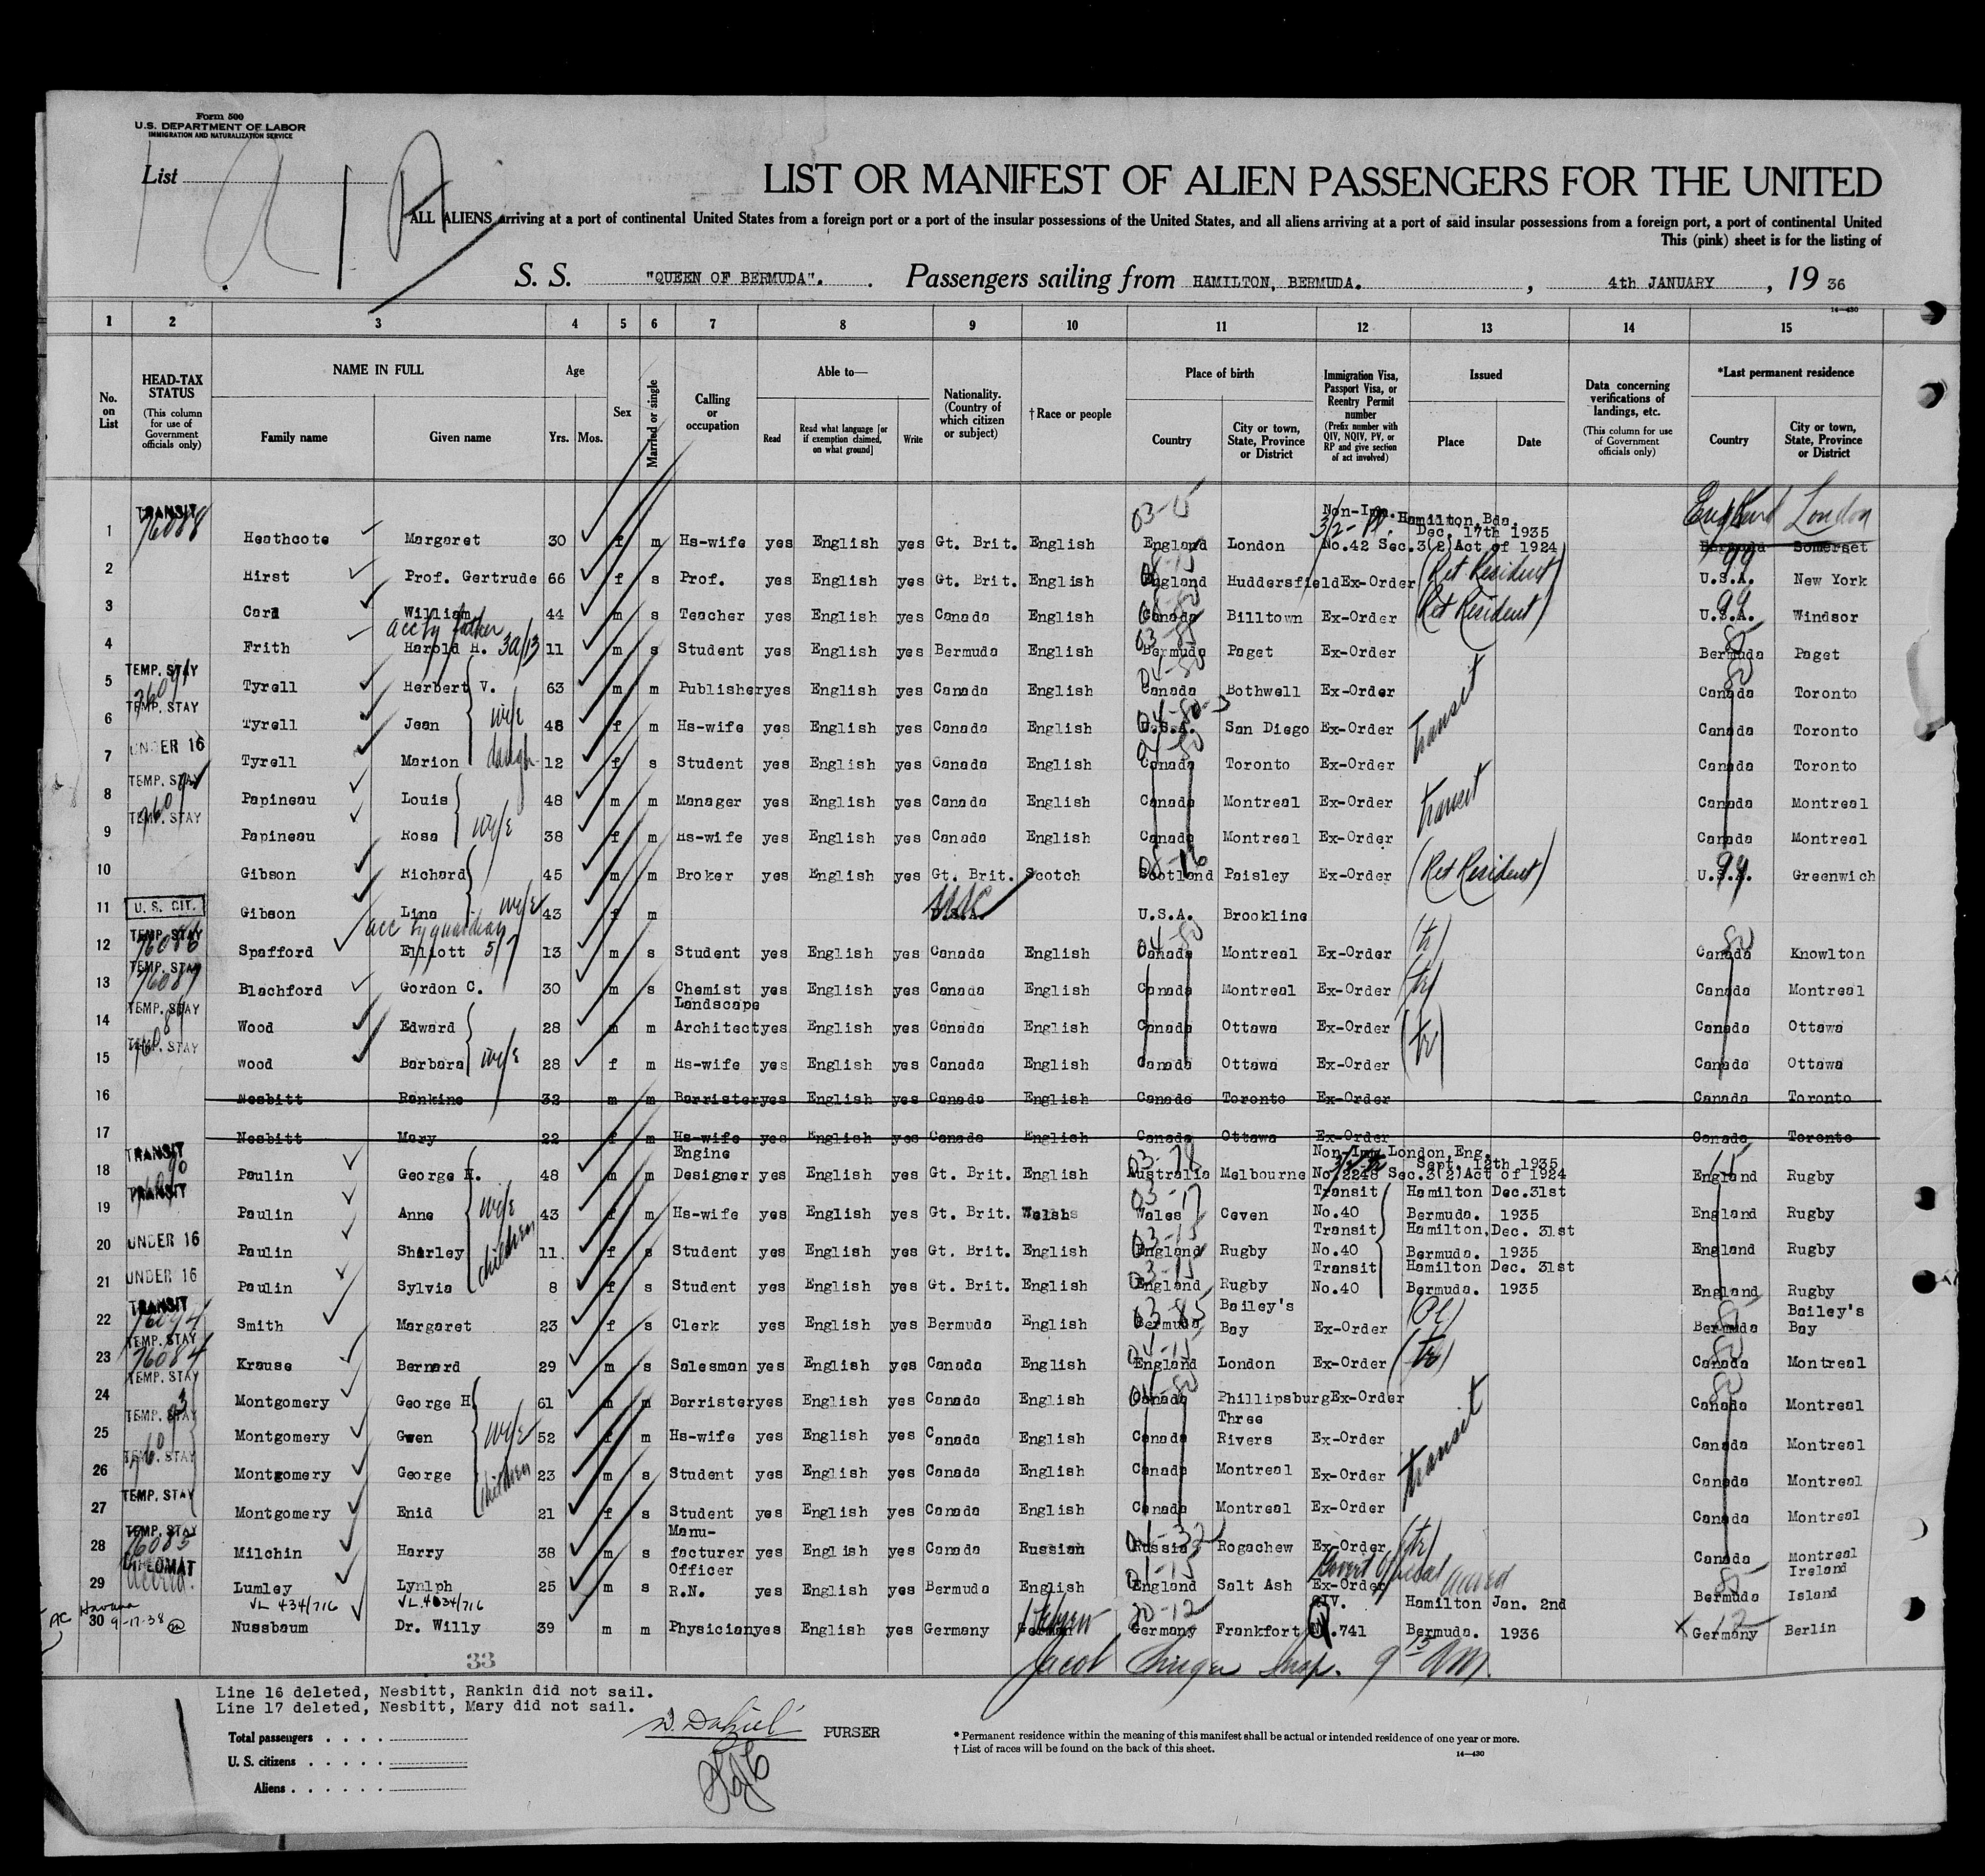 Form 500
U.S. DEPARTMENT OF LABOR
IMMIGRATION AND NATURALIZATION SERVICE
List
LIST OR MANIFEST OF ALIEN PASSENGERS FOR THE UNITED
ALL ALIENS arriving at a port of continental United States from a foreign port or a port of the insular possessions of the United States, and all aliens arriving at a port of said insular possessions from a foreign port, a port of continental United
This (pink) sheet is for the listing of
S. S. "QUEEN OF BERMUDA". Passengers sailing from HAMILTON, BERMUDA. , 4th JANUARY , 19 36
14—430
1 2 3 4 5 6 7 8 9 10 11 12 13 14 15
No. on List
HEAD-TAX STATUS (This column for use of Government officials only)
NAME IN FULL Family name Given name
Age Yrs. Mos.
Sex
Married or single
Calling or occupation
Able to— Read Read what language [or if exemption claimed, on what ground] Write
Nationality. (Country of which citizen or subject)
†Race or people
Place of birth Country City or town, State, Province or District
Immigration Visa, Passport Visa, or Reentry Permit number (Prefix number with QIV, NQIV, PV, or RP and give section of act involved)
Issued Place Date
Data concerning verifications of landings, etc. (This column for use of Government officials only)
*Last permanent residence Country City or town, State, Province or District
TRANSIT 03-15 Non-Imm. Hamilton, Bda. England London
76088 Dec. 17th 1935
1 Heathcote Margaret 30 f m Hs-wife yes English yes Gt. Brit. English England London No.42 Sec.3(2)Act of 1924 Bermuda Somerset
2 Hirst Prof. Gertrude 66 f s Prof. yes English yes Gt. Brit. English England Huddersfield Ex-Order (Ret Resident) 99 U.S.A. New York
3 Card William 44 m s Teacher yes English yes Canada English Canada Billtown Ex-Order (Ret Resident) 99 U.S.A. Windsor
acc by father
4 Frith Harold H. 3a/13 11 m s Student yes English yes Bermuda English Bermuda Paget Ex-Order Bermuda Paget
TEMP. STAY
5 Tyrell Herbert V. 63 m m Publisher yes English yes Canada English Canada Bothwell Ex-Order transit Canada Toronto
TEMP. STAY
6 Tyrell Jean wife 48 f m Hs-wife yes English yes Canada English U.S.A. San Diego Ex-Order Canada Toronto
UNDER 16
7 Tyrell Marion daugh 12 f s Student yes English yes Canada English Canada Toronto Ex-Order Canada Toronto
TEMP. STAY
8 Papineau Louis 48 m m Manager yes English yes Canada English Canada Montreal Ex-Order transit Canada Montreal
TEMP. STAY
9 Papineau Rosa wife 38 f m Hs-wife yes English yes Canada English Canada Montreal Ex-Order Canada Montreal
10 Gibson Richard 45 m m Broker yes English yes Gt. Brit. Scotch Scotland Paisley Ex-Order (Ret Resident) 99 U.S.A. Greenwich
11 U. S. CIT. Gibson Lina wife 43 f m U.S.A. U.S.A. Brookline
acc by guardian
TEMP. STAY 76086
12 Spafford Elliott 13 m s Student yes English yes Canada English Canada Montreal Ex-Order (tr) Canada Knowlton
TEMP. STAY 76087
13 Blachford Gordon C. 30 m s Chemist yes English yes Canada English Canada Montreal Ex-Order (tr) Canada Montreal
TEMP. STAY Landscape
14 Wood Edward 28 m m Architect yes English yes Canada English Canada Ottawa Ex-Order (tr) Canada Ottawa
TEMP. STAY
15 Wood Barbara wife 28 f m Hs-wife yes English yes Canada English Canada Ottawa Ex-Order Canada Ottawa
16 Nesbitt Rankine 32 m m Barrister yes English yes Canada English Canada Toronto Ex-Order Canada Toronto
17 Nesbitt Mary 22 f m Hs-wife yes English yes Canada English Canada Ottawa Ex-Order Canada Toronto
TRANSIT Engine Non-Imm London, Eng. Sept. 12th 1935
18 Paulin George H. 48 m m Designer yes English yes Gt. Brit. English Australia Melbourne No.2248 Sec.3(2)Act of 1924 England Rugby
TRANSIT Transit Hamilton Dec.31st
19 Paulin Anne wife 43 f m Hs-wife yes English yes Gt. Brit. Welsh Wales Ceven No.40 Bermuda. 1935 England Rugby
UNDER 16 Transit Hamilton, Dec. 31st
20 Paulin Shirley children 11 f s Student yes English yes Gt. Brit. English England Rugby No.40 Bermuda. 1935 England Rugby
UNDER 16 Transit Hamilton Dec. 31st
21 Paulin Sylvia 8 f s Student yes English yes Gt. Brit. English England Rugby No.40 Bermuda. 1935 England Rugby
TRANSIT Bailey's Bailey's
22 Smith Margaret 23 f s Clerk yes English yes Bermuda English Bermuda Bay Ex-Order Bermuda Bay
TEMP. STAY 76084
23 Krause Bernard 29 m s Salesman yes English yes Canada English England London Ex-Order (tr) Canada Montreal
TEMP. STAY
24 Montgomery George H 61 m m Barrister yes English yes Canada English Canada Phillipsburg Ex-Order transit Canada Montreal
TEMP. STAY Three
25 Montgomery Gwen wife 52 f m Hs-wife yes English yes Canada English Canada Rivers Ex-Order Canada Montreal
TEMP. STAY
26 Montgomery George children 23 m s Student yes English yes Canada English Canada Montreal Ex-Order Canada Montreal
TEMP. STAY
27 Montgomery Enid 21 f s Student yes English yes Canada English Canada Montreal Ex-Order Canada Montreal
TEMP. STAY 76085 Manu-
28 Milchin Harry 38 m s facturer yes English yes Canada Russian Russia Rogachew Ex-Order (tr) Canada Montreal
DIPLOMAT Officer Ireland
29 Lumley Lynlph 25 m s R.N. yes English yes Bermuda English England Salt Ash Ex-Order Bermuda Island
Havana VL 434/716 QIV. Hamilton Jan. 2nd
30 9-17-38 Nussbaum Dr. Willy 39 m m Physician yes English yes Germany Hebrew Germany Frankfort No.741 Bermuda. 1936 Germany Berlin
33
Jacob Insp. 9 AM.
Line 16 deleted, Nesbitt, Rankin did not sail.
Line 17 deleted, Nesbitt, Mary did not sail.
PURSER
Total passengers . . . .
U. S. citizens . . . . .
Aliens . . . . . .
* Permanent residence within the meaning of this manifest shall be actual or intended residence of one year or more.
† List of races will be found on the back of this sheet.
14—430